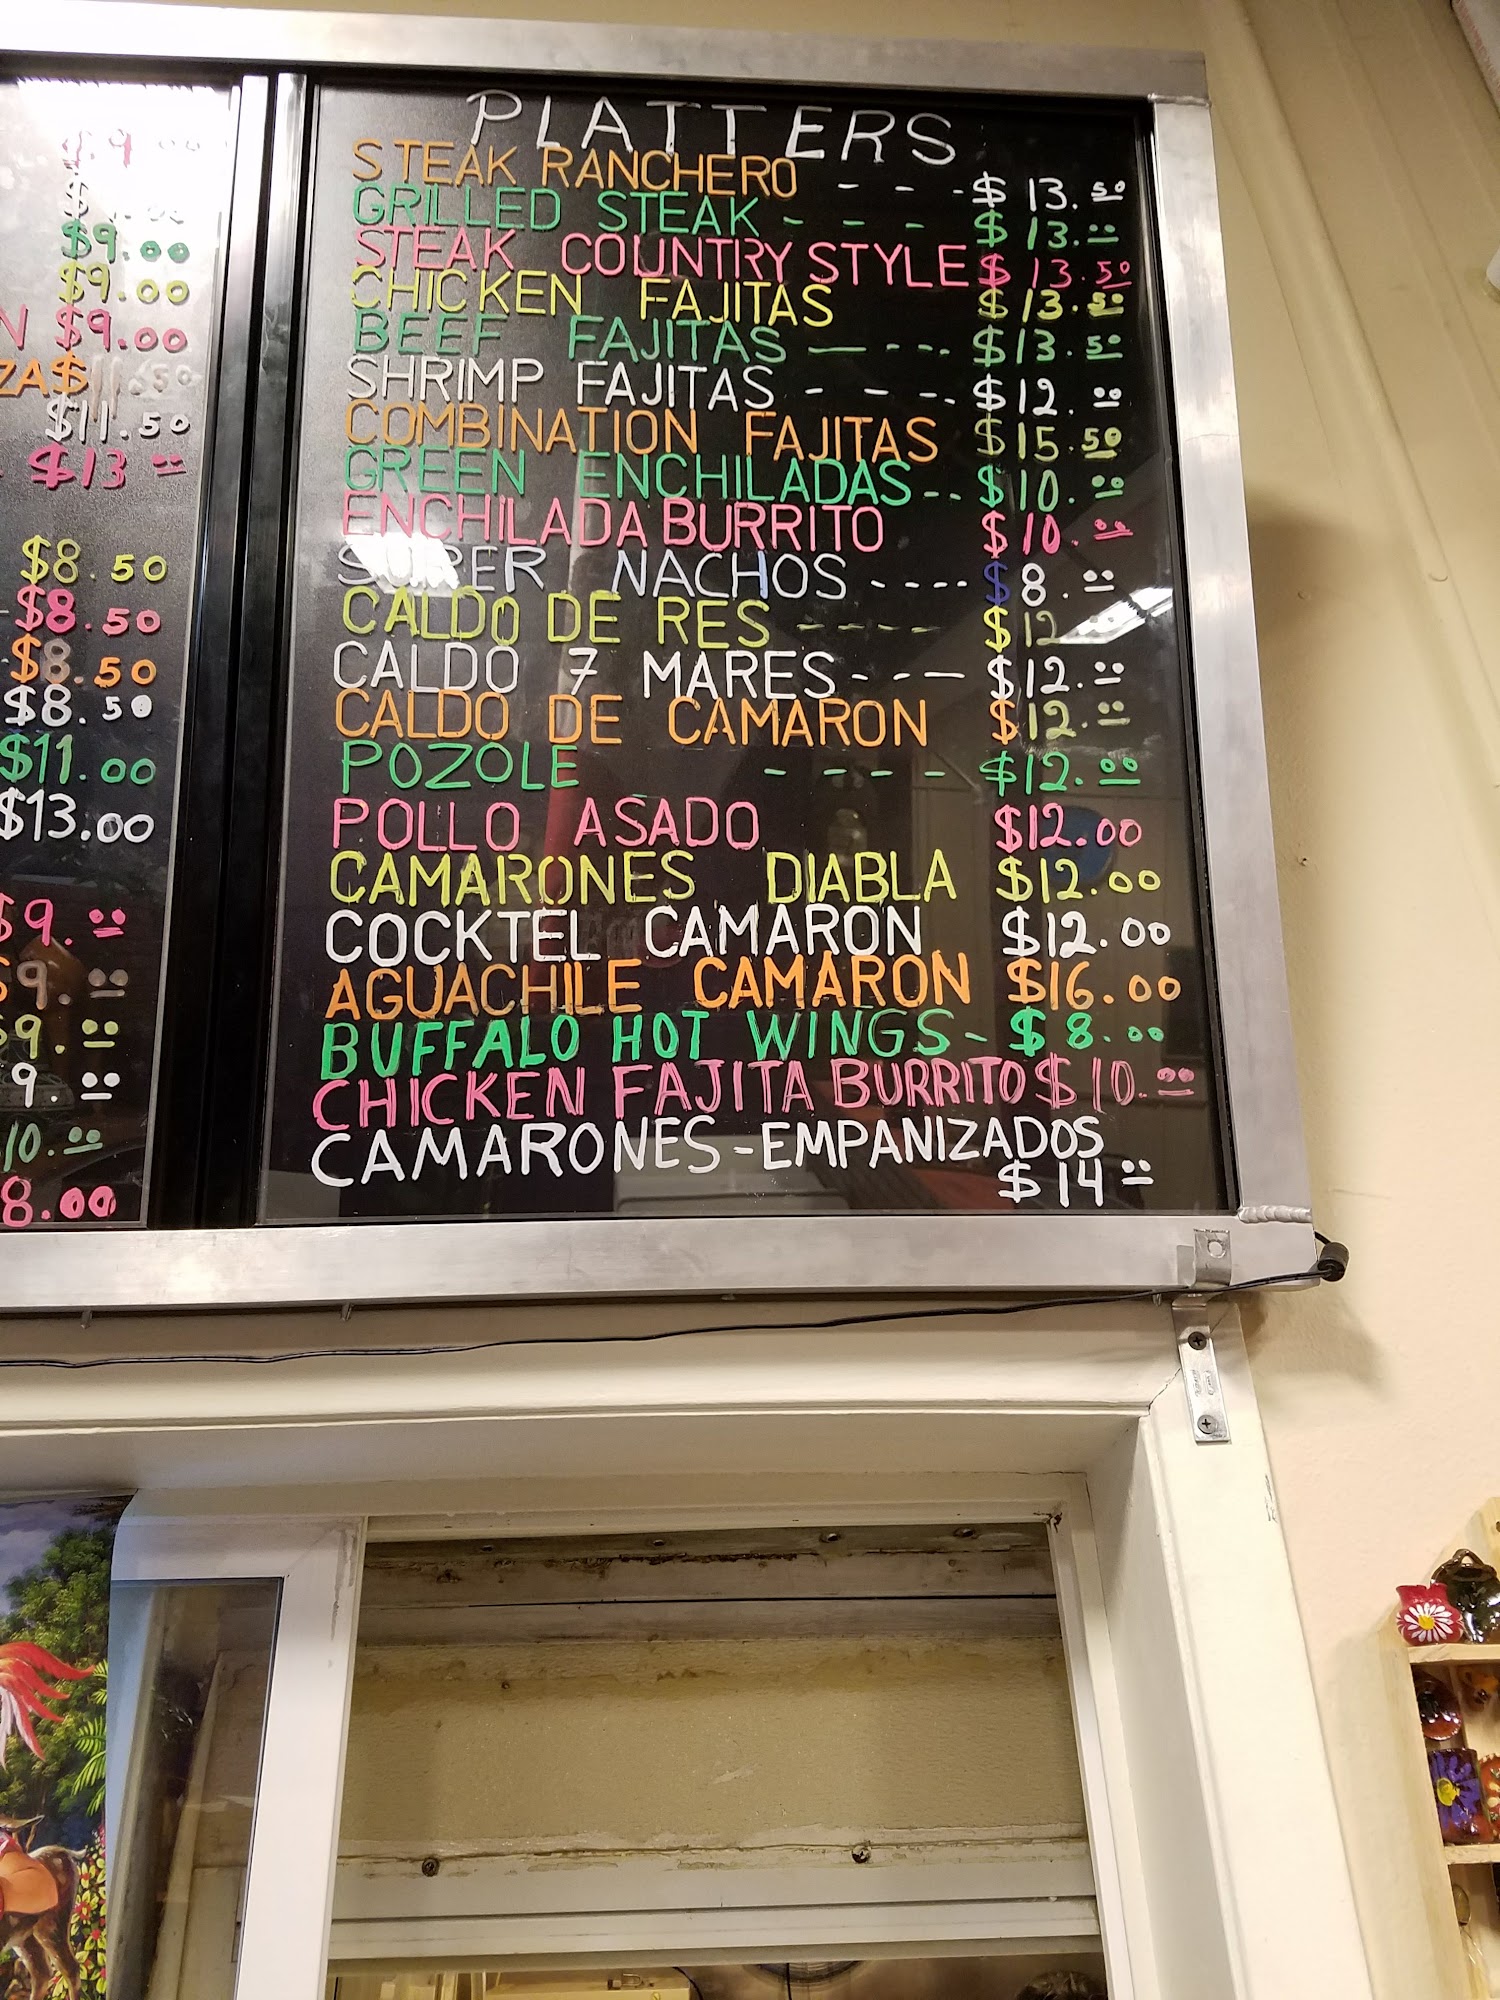 $9.00
$9.00
$9.00
N $9.00
ZA $11.50
$11.50
$13.00
$8.50
$8.50
$8.50
$8.50
$11.00
$13.00
$9.00
$9.00
$9.00
9.00
10.00
8.00
PLATTERS
STEAK RANCHERO - - - $13.50
GRILLED STEAK - - - - $13.00
STEAK COUNTRY STYLE $13.50
CHICKEN FAJITAS $13.50
BEEF FAJITAS - - - - $13.50
SHRIMP FAJITAS - - - - $12.00
COMBINATION FAJITAS $15.50
GREEN ENCHILADAS - - $10.00
ENCHILADA BURRITO $10.00
SUPER NACHOS - - - - $8.00
CALDO DE RES - - - - $12
CALDO 7 MARES - - - $12.00
CALDO DE CAMARON $12.00
POZOLE - - - - $12.00
POLLO ASADO $12.00
CAMARONES DIABLA $12.00
COCKTEL CAMARON $12.00
AGUACHILE CAMARON $16.00
BUFFALO HOT WINGS - $8.00
CHICKEN FAJITA BURRITO $10.00
CAMARONES - EMPANIZADOS
$14.00